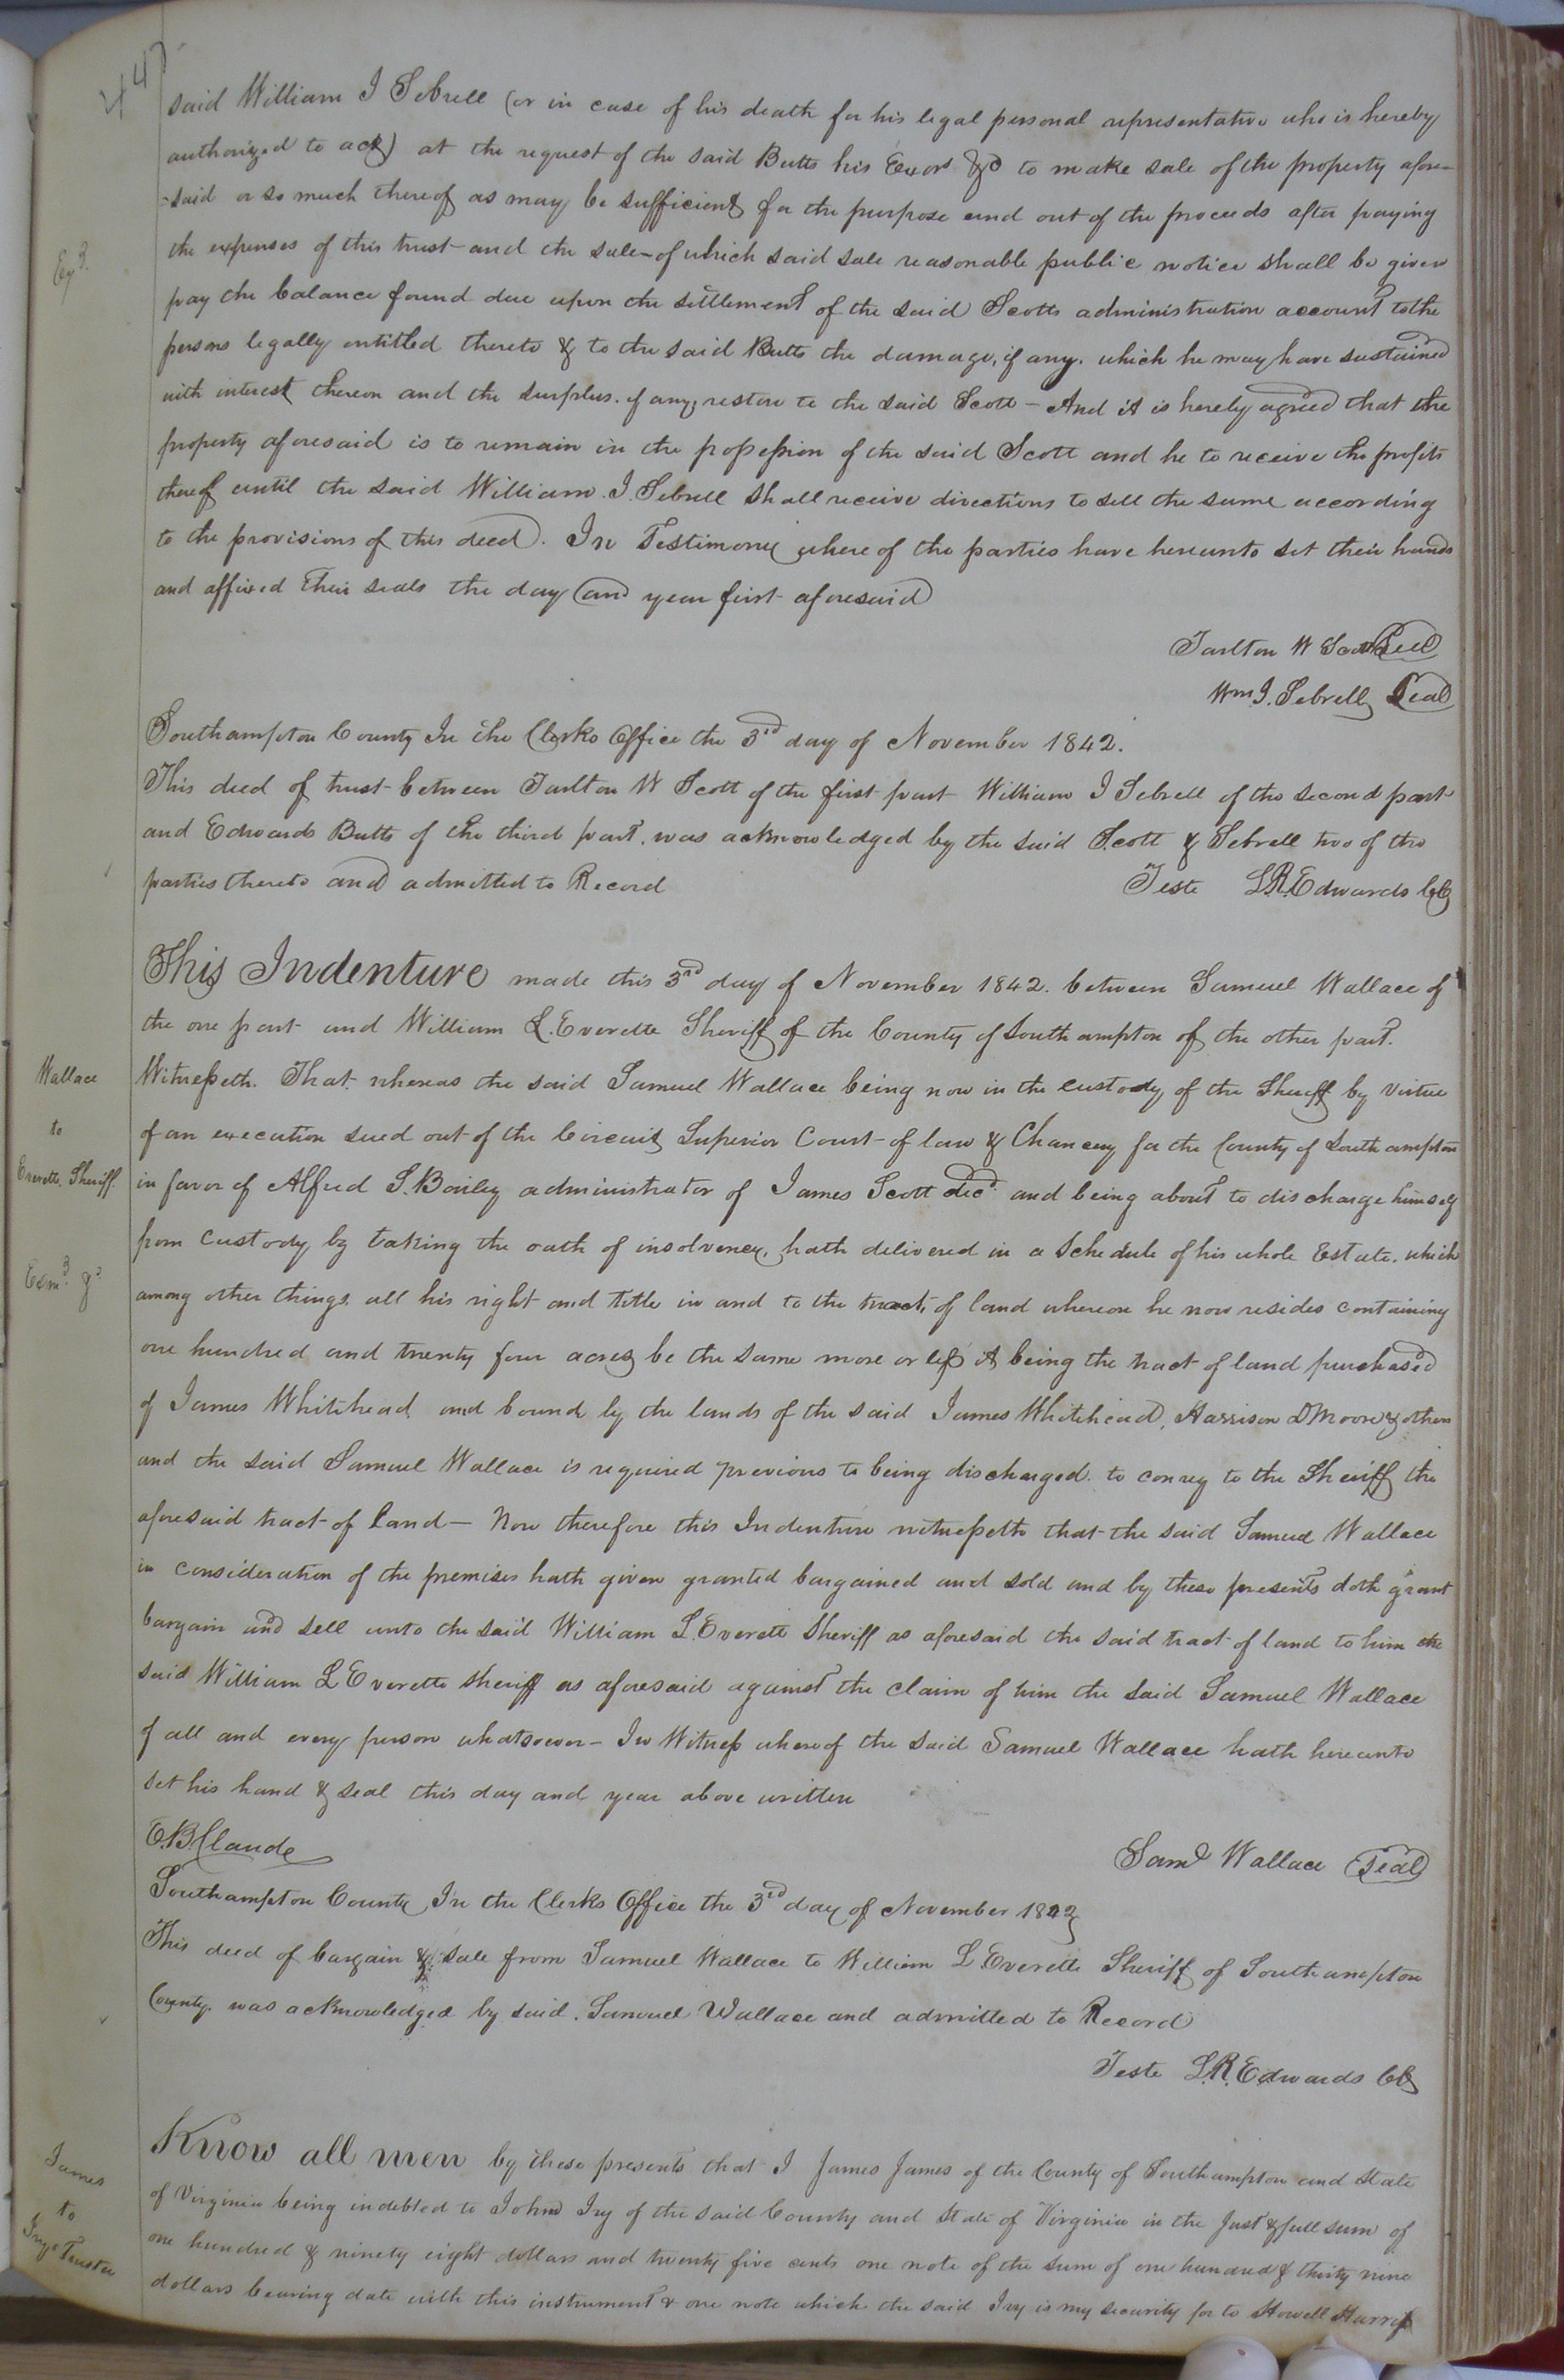 447
said William I Sebrell (or in case of his death for his legal personal representative who is hereby
authorized to act) at the request of the said Butts his Exors &c to make sale of the property afore-
-said or so much thereof as may be sufficient for the purpose and out of the proceeds after paying
the expenses of this trust and the sale - of which said sale reasonable public notice shall be given
pay the balance found due upon the settlement of the said Scotts administration account to the
persons legally entitled thereto & to the said Butts the damage, if any, which he may have sustained
with interest thereon and the surplus, if any, restore to the said Scott - And it is hereby agreed that the
property aforesaid is to remain in the possession of the said Scott and he to receive the profits
thereof until the said William I. Sebrell shall receive directions to sell the same according
to the provisions of this deed. In Testimony whereof the parties have hereunto set their hands
and affixed their seals the day and year first aforesaid
Tarlton W Scott Seal
Wm I. Sebrell Seal
Southampton County In the Clerks Office the 3rd day of November 1842.
This deed of trust between Tarlton W Scott of the first part William I Sebrell of the second part
and Edwards Butts of the third part. was acknowledged by the said Scott & Sebrell two of the
parties thereto and admitted to Record
Teste L.R. Edwards CC
This Indenture made this 3rd day of November 1842. between Samuel Wallace of
the one part and William L. Everette Sheriff of the County of Southampton of the other part.
Wallace
to
Everette. Sheriff.
Exmd &c
Witnesseth. That whereas the said Samuel Wallace being now in the custody of the Sheriff by virtue
of an execution sued out of the Circuit Superior Court of law & Chancery for the County of Southampton
in favor of Alfred S. Bailey administrator of James Scott decd and being about to discharge himself
from custody by taking the oath of insolvency, hath delivered in a Schedule of his whole Estate. which
among other things. all his right and title in and to the tract, of land whereon he now resides containing
one hundred and twenty four acres be the same more or less it being the tract of land purchased
of James Whitehead and bound by the lands of the said James Whitehead, Harrison D Moore & others
and the said Samuel Wallace is required previous to being discharged. to convey to the Sheriff the
aforesaid tract of land - Now therefore this Indenture witnesseth that the said Samuel Wallace
in consideration of the premises hath given granted bargained and sold and by these presents doth grant
bargain and sell unto the said William L. Everett Sheriff as aforesaid the said tract of land to him the
said William L Everette Sheriff as aforesaid against the claim of him the said Samuel Wallace
of all and every person whatsoever - In Witness whereof the said Samuel Wallace hath hereunto
set his hand & seal this day and year above written
E.B. Claude
Saml Wallace Seal
Southampton County In the Clerks Office the 3rd day of November 1842
This deed of bargain & sale from Samuel Wallace to William L Everette Sheriff of Southampton
County. was acknowledged by said. Samuel Wallace and admitted to Record
Teste L.R. Edwards CC
James
to
Ivy's Trustee
Know all men by these presents that I James James of the County of Southampton and State
of Virginia being indebted to John Ivy of the said County and State of Virginia in the Just & full sum of
one hundred & ninety eight dollars and twenty five cents one note of the sum of one hundred & thirty nine
dollars bearing date with this instrument & one note which the said Ivy is my security for to Howell Harriss